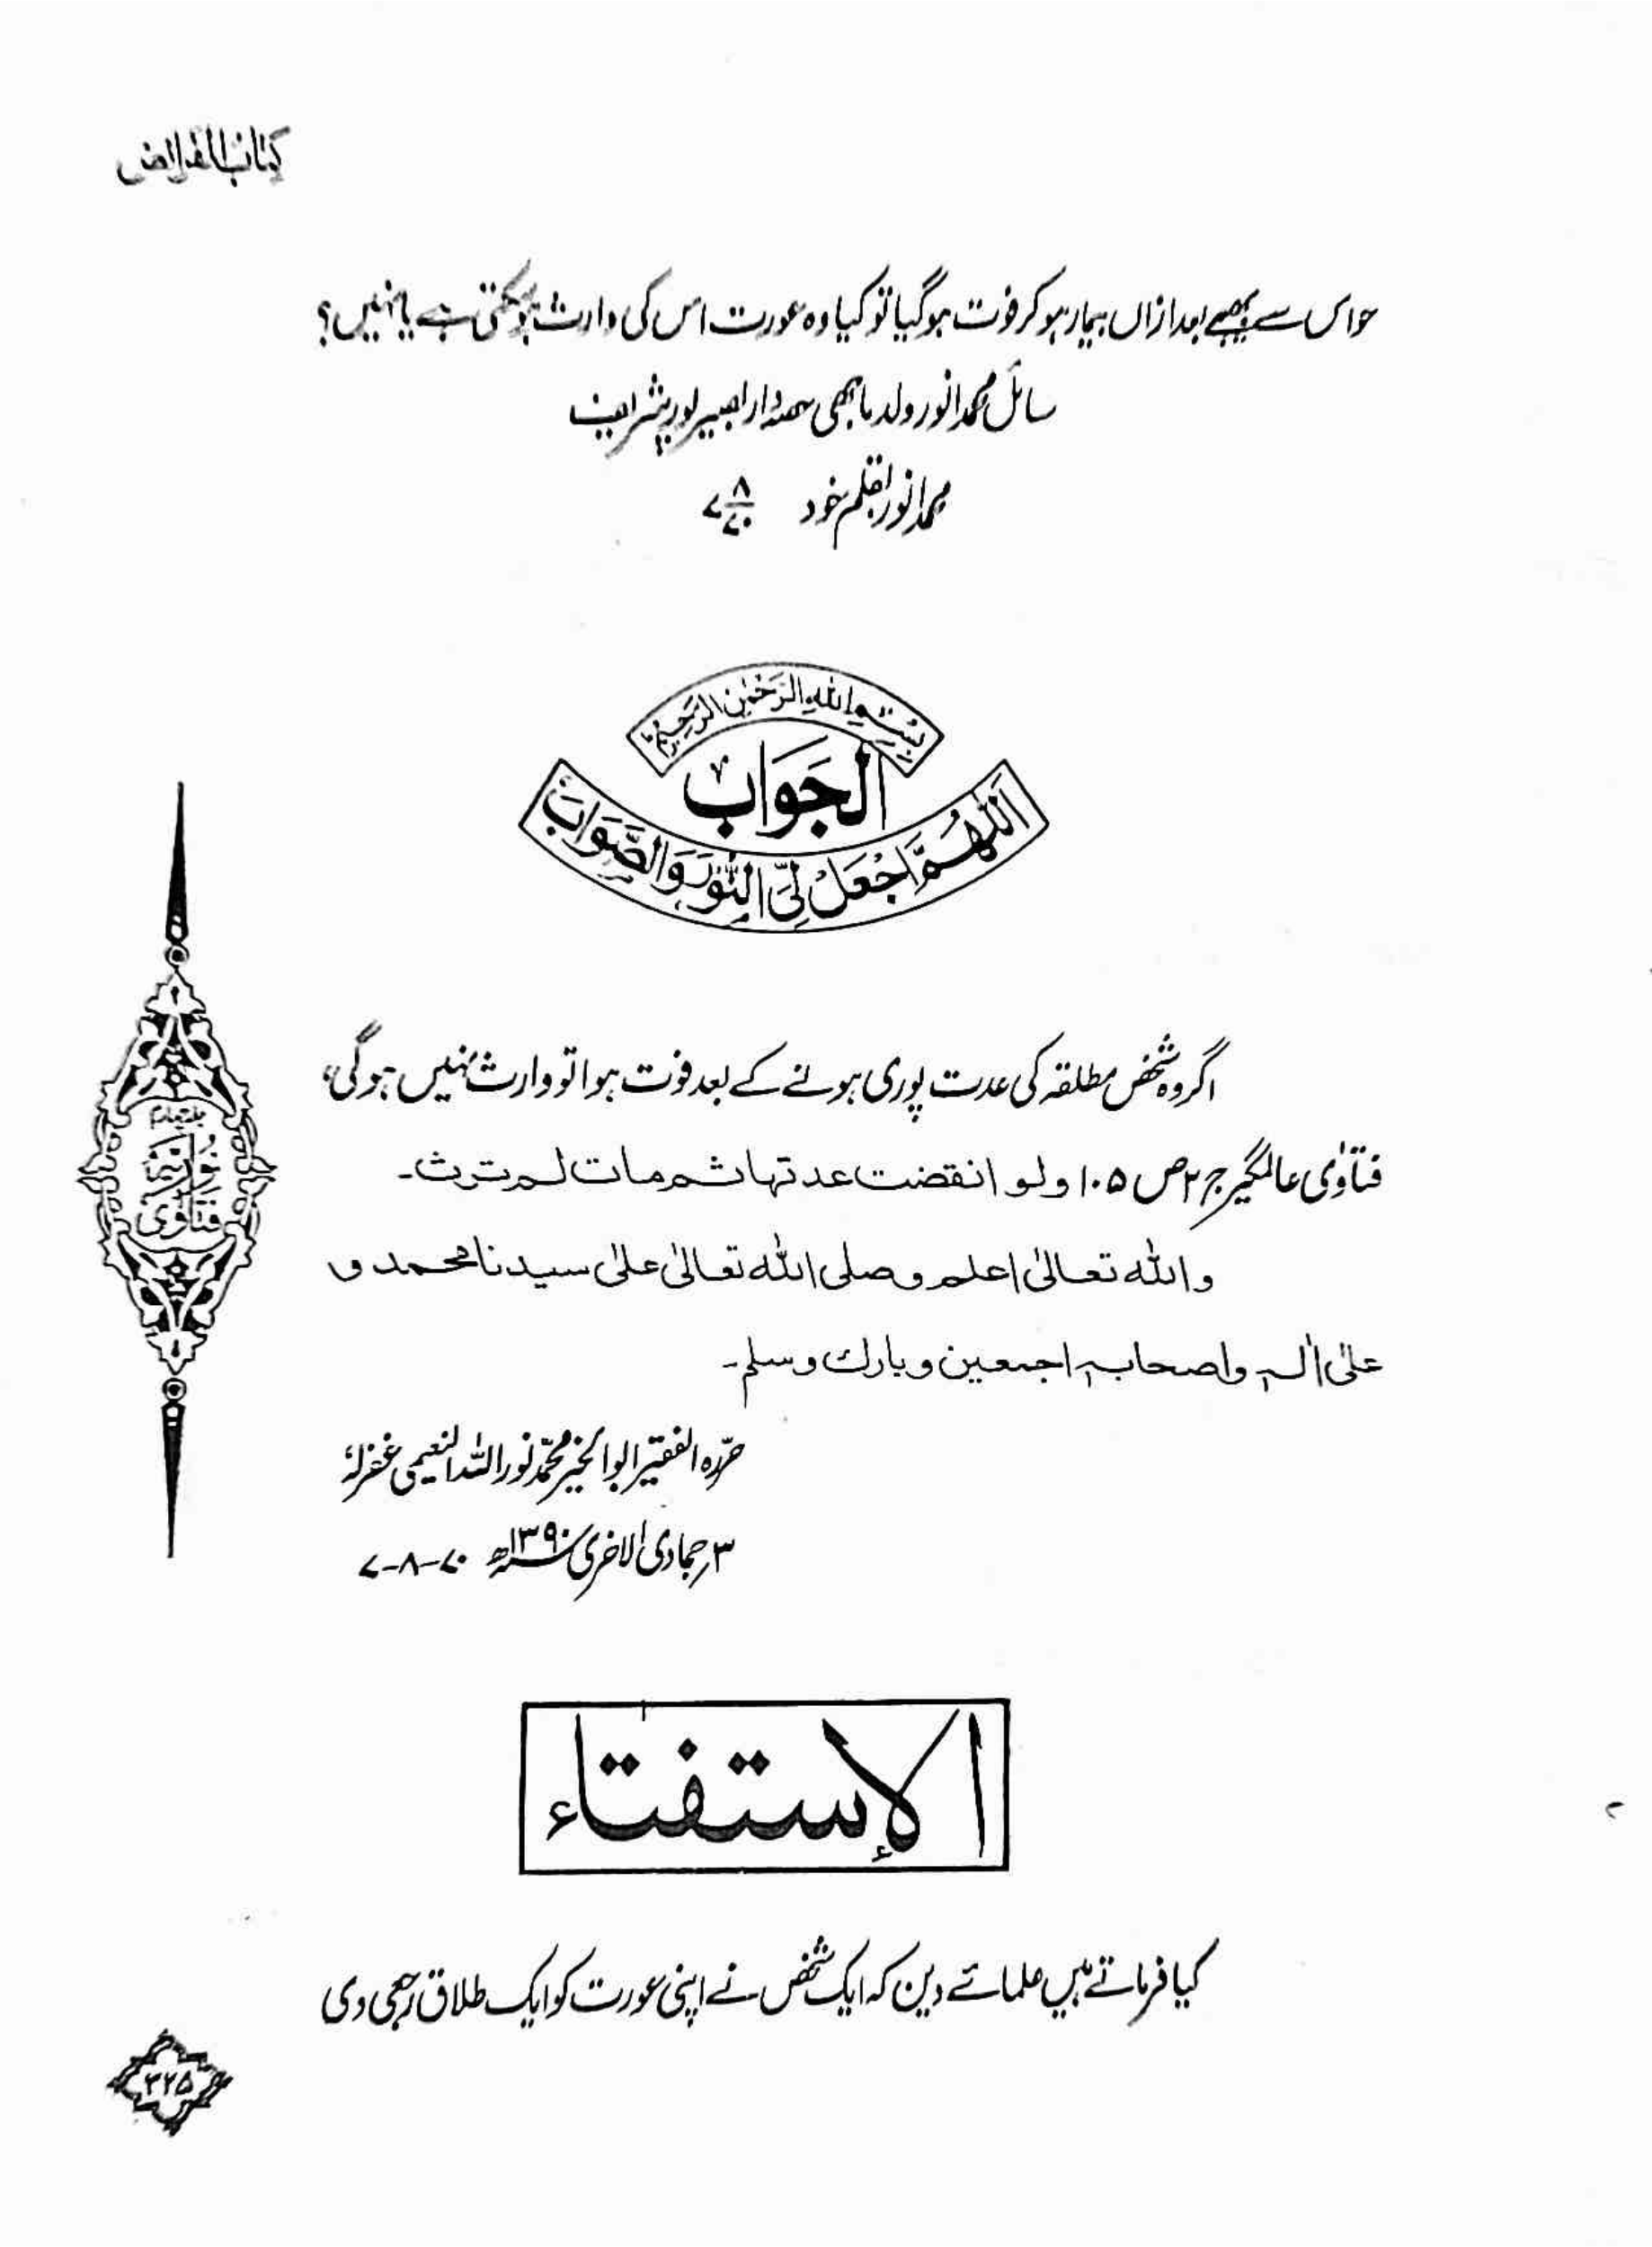 کتاب الفرائض
حواس سے بھیجے بعد ازاں بیمار ہو کر فوت ہو گیا تو کیا وہ عورت اس کی وارث ہو سکتی ہے یا نہیں؟
سائل محمد انور ولد ماہی بصیرپور شریف
محمد انور بقلم خود ۷/۸/۷۰
بِسْمِ اللهِ الرَّحْمٰنِ الرَّحِيْمِ
الجَوَاب
اَللّٰهُمَّ اجْعَلْ لِّيَ النُّوْرَ وَالصَّوَابَ
اگر وہ شخص مطلقہ کی عدت پوری ہونے کے بعد فوت ہوا تو وارث نہیں ہوگی،
فتاوٰی عالمگیر ج ۲ ص ۱۰۵ ولو انقضت عدتها ثم مات لم ترث۔
والله تعالیٰ اعلم وصلی الله تعالیٰ علیٰ سیدنا محمد و
علیٰ اٰلہٖ واصحابہٖ اجمعین وبارك وسلم۔
حرّرہ الفقیر ابو الخیر محمّد نور اللہ النعیمی غفرلہٗ
۳ جمادی الاخریٰ ۱۳۹۰ھ ۷-۸-۷۰
جلد چہارم
فتاوٰی نوریہ
الإستفتاء
کیا فرماتے ہیں علمائے دین کہ ایک شخص نے اپنی عورت کو ایک طلاق رجعی دی
۳۲۵